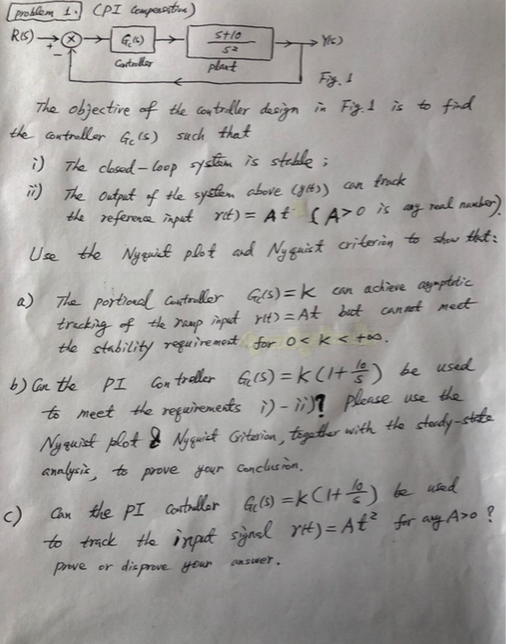 problem 1. (PI Compensation)
R(s) + - Gc(s) s+10 / s² Y(s)
Controller plant
Fig. 1
The objective of the controller design in Fig. 1 is to find
the controller Gc(s) such that
i) The closed-loop system is stable;
ii) The output of the system above (y(t)) can track
the reference input r(t) = At (A>0 is any real number).
Use the Nyquist plot and Nyquist criterion to show that:
a) The portional Controller Gc(s)=K can achieve asymptotic
tracking of the ramp input r(t)=At but cannot meet
the stability requirement for 0<K<+∞.
b) Can the PI Controller Gc(s)=K(1+10/s) be used
to meet the requirements i)-ii)? Please use the
Nyquist plot & Nyquist Criterion, together with the steady-state
analysis, to prove your conclusion.
c) Can the PI Controller Gc(s)=K(1+10/s) be used
to track the input signal r(t)=At² for any A>0?
prove or disprove your answer.